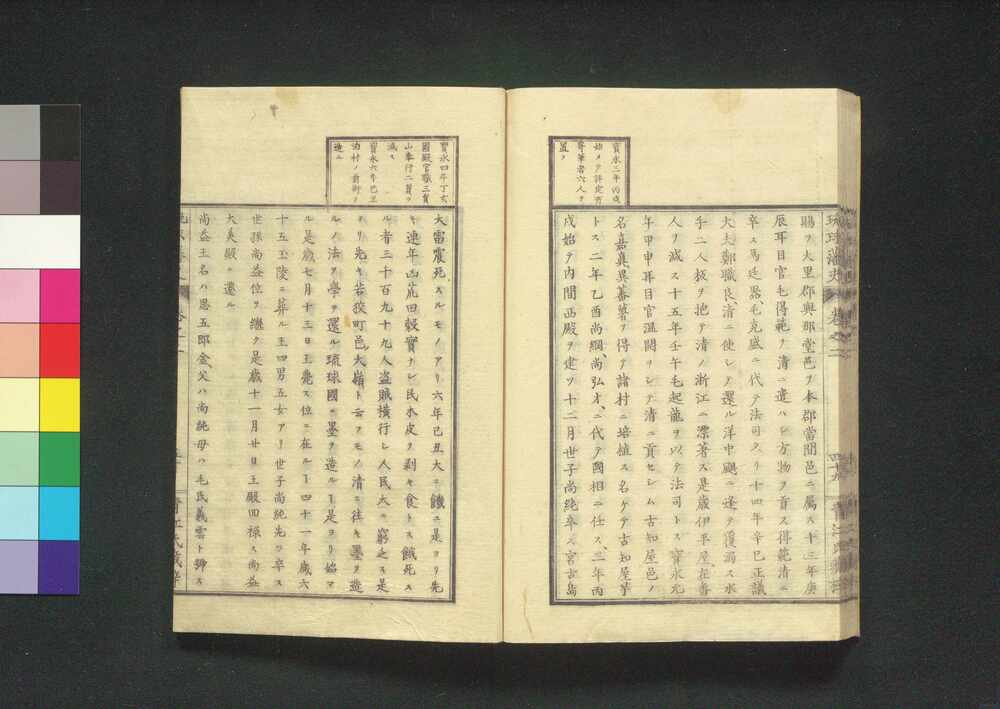 寶永三年丙戌
始メテ評定所
筆者六人ヲ
置ク
琉球藩史 卷之二
賜ヲ大里郡與那堂邑ヲ本郡當間邑ニ屬ス十三年庚
辰耳目官毛得範ヲ清ニ遣ハシ方物ヲ貢ス得範清ニ
卒ス馬廷器、毛克盛ニ代テ法司タリ十四年辛巳正議
大夫鄭職良清ニ使シテ還ル洋中颶ニ逢テ覆溺ス水
手二人板ヲ抱テ清ノ浙江ニ漂著ス是歳伊平屋在番
人ヲ減ス十五年壬午毛起龍ヲ以テ法司トス寶永元
年甲申耳目官温開ヲシテ清ニ貢セシム古知屋邑ノ
名嘉眞異蕃薯ヲ得テ諸村ニ培植ス名ケテ古知屋芋
トス二年乙酉尚綱、尚弘才ニ代テ國相ニ任ス三年丙
戌始テ内間西殿ヲ建ツ十二月世子尚純卒ス宮古島
寶永四年丁亥
國殿官職三員
山奉行二員ヲ
減ス
寶永六年己丑
泊村ノ前街ヲ
造ル
大雷震死スルモノアリ六年己丑大ニ饑ユ是ヨリ先
キ連年凶荒田穀實ナシ民木皮ヲ剥キ食トス餓死ス
ル者三千百九十九人盗賊横行シ人民大ニ窮乏ス是
ヨリ先キ若狹町邑大嶺ト云フモノ清ニ往キ墨ヲ造
ルノ法ヲ學テ還ル琉球國ニ墨ヲ造ルヿ是ヨリ始マ
ル是歳七月十三日王薨ス位ニ在ルヿ四十一年歳六
十五玉陵ニ葬ル王四男五女アリ世子尚純先ツ卒ス
世孫尚益位ヲ繼ク是歳十一月廿日王殿回禄ス尚益
大美殿ニ還ル
尚益王名ハ思五郎金父ハ尚純母ハ毛氏義雲ト號ス